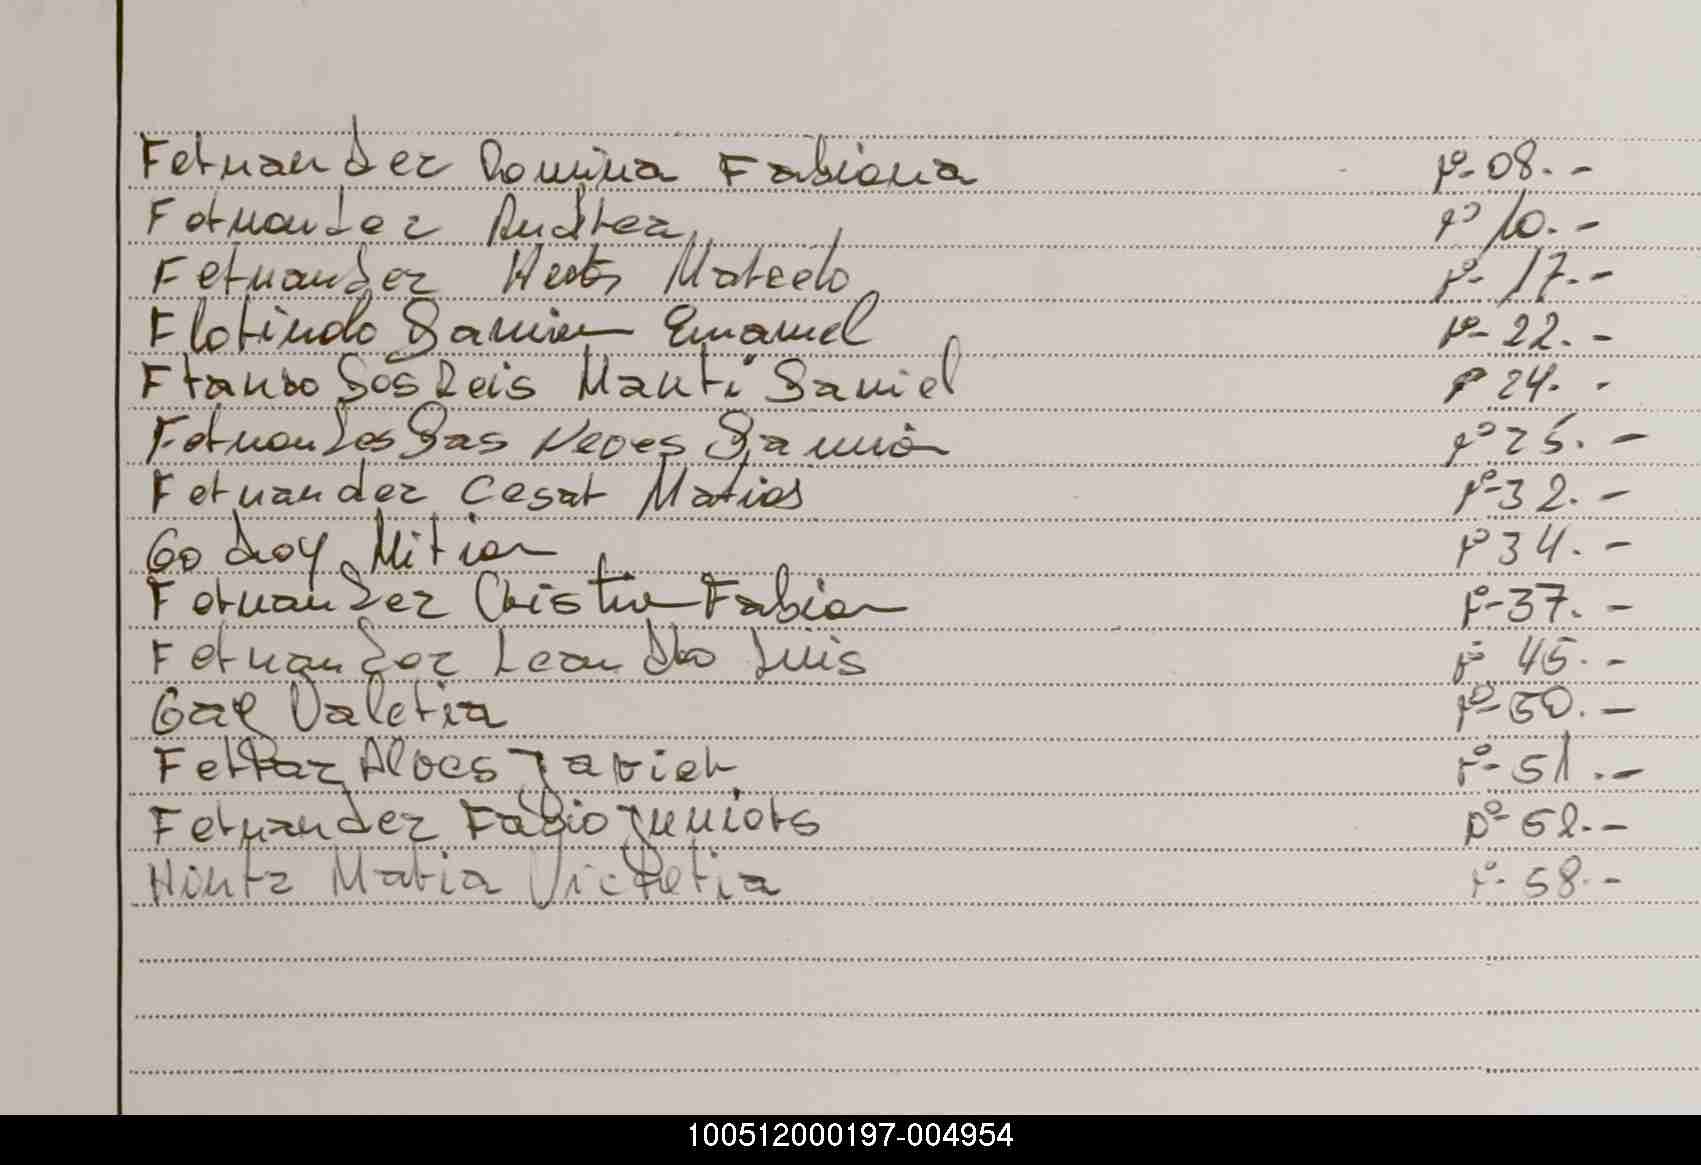 Fernandez Romina Fabiana Fº 08.-
Fernandez Andrea Fº 10.-
Fernandez Hector Marcelo Fº 17.-
Florindo Damian Emanuel Fº 22.-
Franco Dos Reis Marti Daniel Fº 24.-
Fernandes Das Neves Damián Fº 25.-
Fernandez Cesar Matias Fº 32.-
Godoy Mirian Fº 34.-
Fernandez Cristian Fabian Fº 37.-
Fernandez Leandro Luis Fº 45.-
Valeria Fº 50.-
Ferraz Alves Javier Fº 51.-
Fernandez Fabio Juniors Fº 52.-
Hintz Maria Victoria Fº 58.-
100512000197-004954